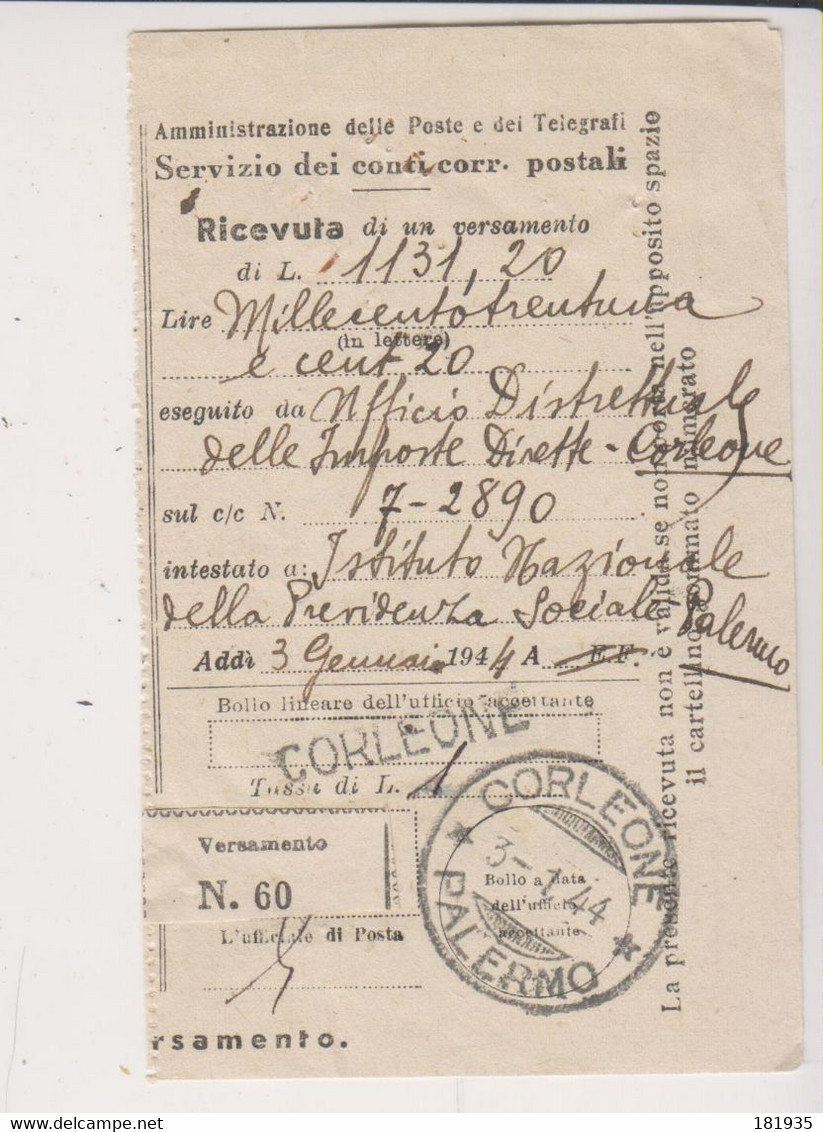 Amministrazione delle Poste e dei Telegrafi
Servizio dei conti corr. postali
Ricevuta di un versamento
di L. 1131,20
Lire Millecentotrentuna
(in lettere)
e cent. 20
eseguito da Ufficio Distrettuale
delle Imposte Dirette - Corleone
sul c/c N. 7-2890
intestato a: Istituto Nazionale
della Previdenza Sociale Palermo
Addì 3 Gennaio 1944 A E.F.
Bollo lineare dell'ufficio accettante
CORLEONE
Tassa di L. 1
Versamento
N. 60
L'ufficiale di Posta
CORLEONE
3-1.44
Bollo a data
dell'ufficio
accettante
PALERMO
rsamento.
La presente ricevuta non è valida se non porta nell'apposito spazio
il cartellino gommato numerato
181935